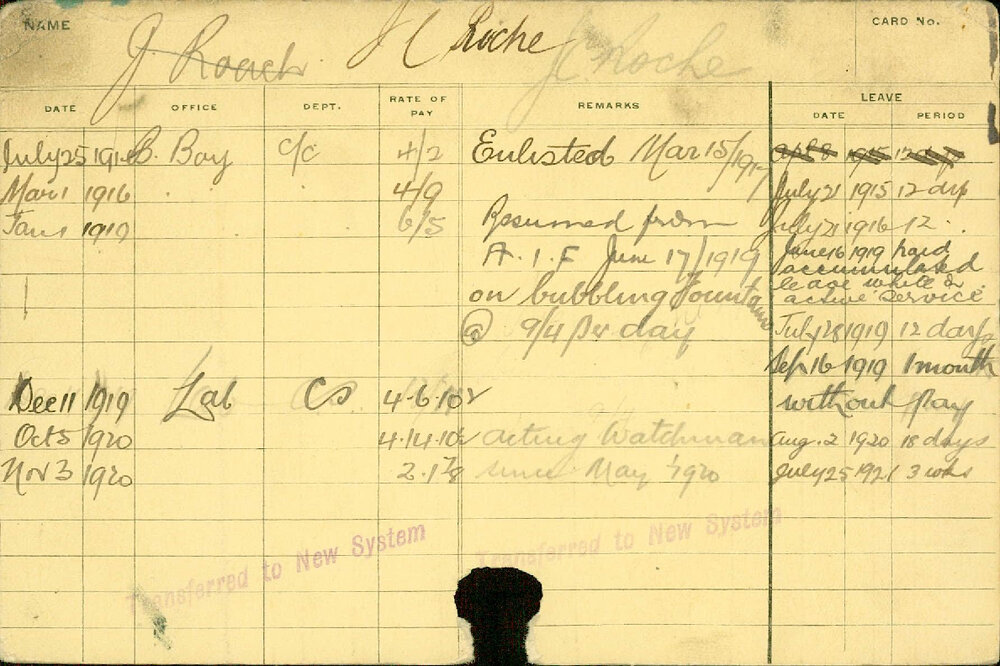 NAME J Roach J C Roche J C Roche CARD No.
DATE OFFICE DEPT. RATE OF PAY REMARKS LEAVE
DATE PERIOD
July 25 1914 B. Boy C/C 4/2 Enlisted Mar 15/1917 Apl 8 1915 12 days
Mar 1 1916 . . 4/9 July 21 1915 12 days
Jan 1 1919 6/5 Resumed from July 21 1916 12 .
A.I.F June 17/1919 June 16 1919 paid
accumulated
on bubbling Fountains leave while on
active service
@ 9/4 per day July 28 1919 12 days
Sep 16 1919 1 month
Dec 11 1919 Lab CS 4.6.10½ without pay
Oct 5 1920 4.14.10½ acting Watchman Aug. 2 1920 18 days
Nov 3 1920 2.1⅞ since May 1920 July 25 1921 3 wks
Transferred to New System Transferred to New System